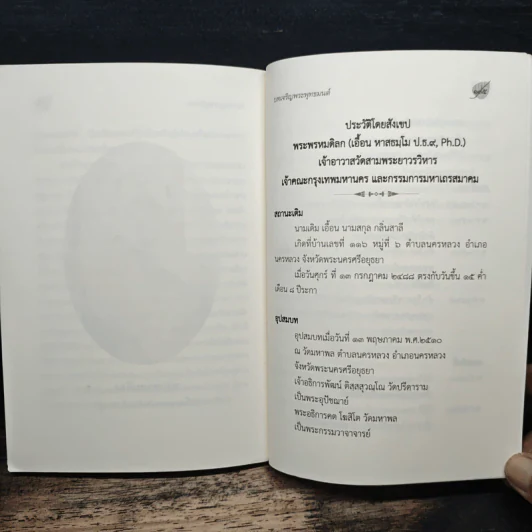 บทเจริญพระพุทธมนต์
ประวัติโดยสังเขป
พระพรหมดิลก (เอื้อน หาสธมฺโม ป.ธ.๙, Ph.D.)
เจ้าอาวาสวัดสามพระยาวรวิหาร
เจ้าคณะกรุงเทพมหานคร และกรรมการมหาเถรสมาคม
สถานะเดิม
นามเดิม เอื้อน นามสกุล กลิ่นสาลี
เกิดที่บ้านเลขที่ ๑๑๖ หมู่ที่ ๖ ตำบลนครหลวง อำเภอ
นครหลวง จังหวัดพระนครศรีอยุธยา
เมื่อวันศุกร์ ที่ ๑๓ กรกฎาคม ๒๔๘๘ ตรงกับวันขึ้น ๑๕ ค่ำ
เดือน ๘ ปีระกา
อุปสมบท
อุปสมบทเมื่อวันที่ ๑๓ พฤษภาคม พ.ศ.๒๕๑๐
ณ วัดมหาพล ตำบลนครหลวง อำเภอนครหลวง
จังหวัดพระนครศรีอยุธยา
เจ้าอธิการพัฒน์ ติสฺสสุวณฺโณ วัดปรีดาราม
เป็นพระอุปัชฌาย์
พระอธิการคต โฆสิโต วัดมหาพล
เป็นพระกรรมวาจาจารย์